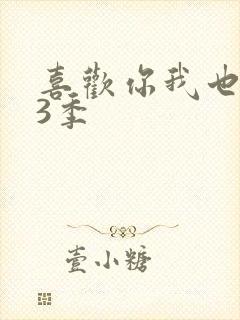 喜歡你我也
3季
壹小糖